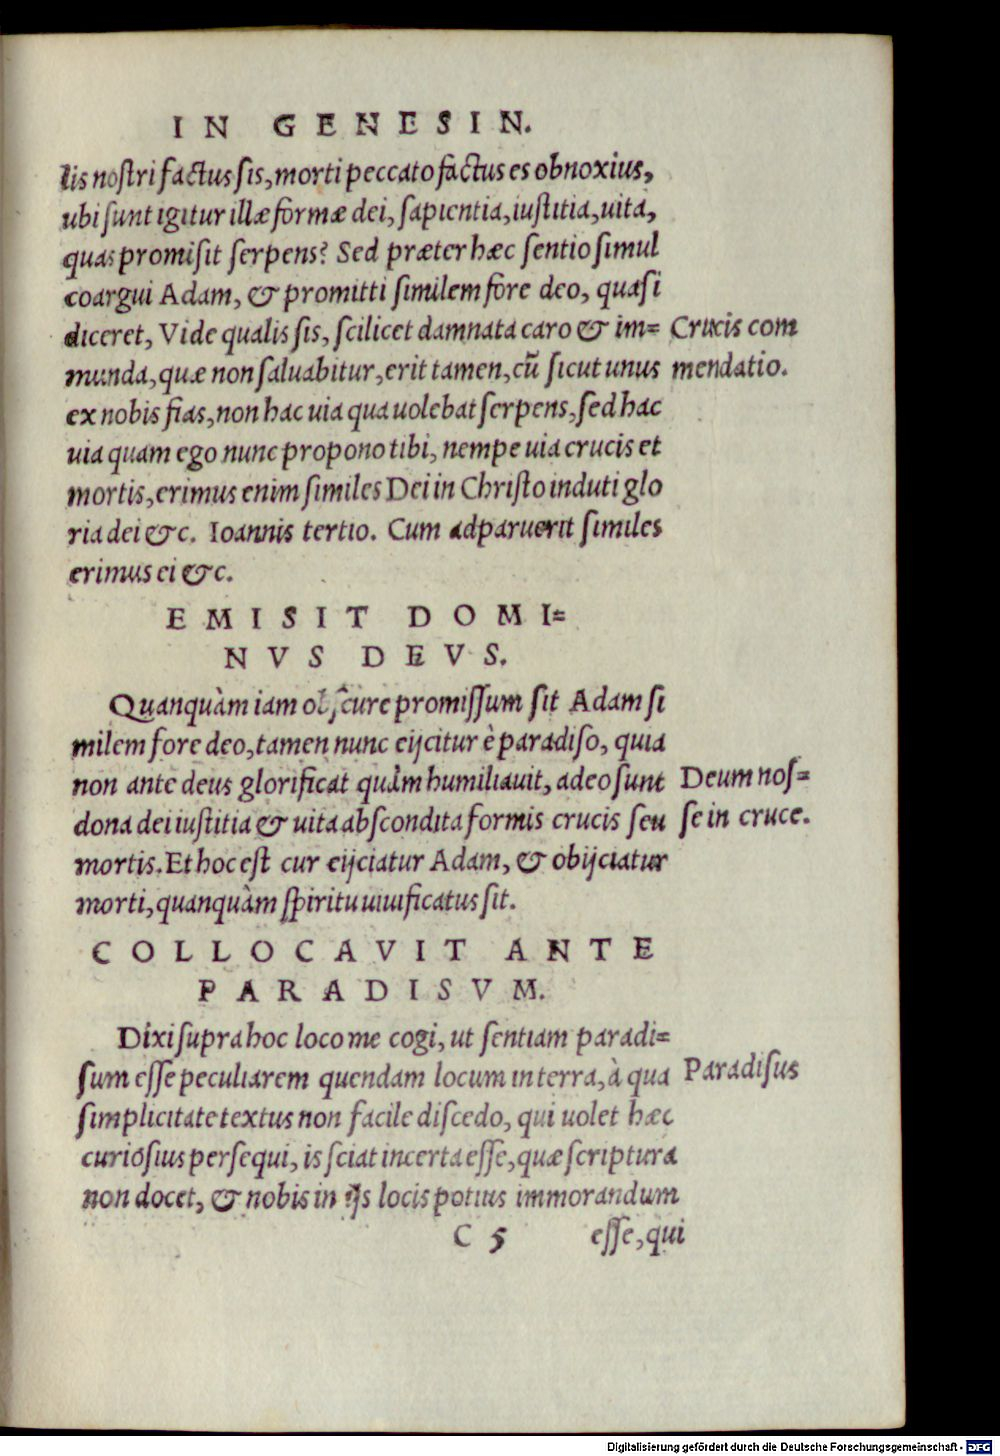 IN GENESIN.
lis nostri factus sis, morti peccato factus es obnoxius,
ubi sunt igitur illæ formæ dei, sapientia, iustitia, uita,
quas promisit serpens? Sed præter hæc sentio simul
coargui Adam, & promitti similem fore deo, quasi
diceret, Vide qualis sis, scilicet damnata caro & im=
Crucis com
munda, quæ non saluabitur, erit tamen, cũ sicut unus
mendatio.
ex nobis fias, non hac uia qua uolebat serpens, sed hac
uia quam ego nunc propono tibi, nempe uia crucis et
mortis, erimus enim similes Dei in Christo induti glo
ria dei &c. Ioannis tertio. Cum adparuerit similes
erimus ei &c.
EMISIT DOMI=
NVS DEVS.
Quanquàm iam obscure promissum sit Adam si
milem fore deo, tamen nunc eijcitur è paradiso, quia
non ante deus glorificat quàm humiliauit, adeo sunt
Deum nos=
dona dei iustitia & uita abscondita formis crucis seu
se in cruce.
mortis. Et hoc est cur eijciatur Adam, & obijciatur
morti, quanquàm spiritu uiuificatus sit.
COLLOCAVIT ANTE
PARADISVM.
Dixi supra hoc loco me cogi, ut sentiam paradi=
sum esse peculiarem quendam locum in terra, à qua
Paradisus
simplicitate textus non facile discedo, qui uolet hæc
curiosius persequi, is sciat incerta esse, quæ scriptura
non docet, & nobis in ijs locis potius immorandum
C 5
esse, qui
Digitalisierung gefördert durch die Deutsche Forschungsgemeinschaft - DFG